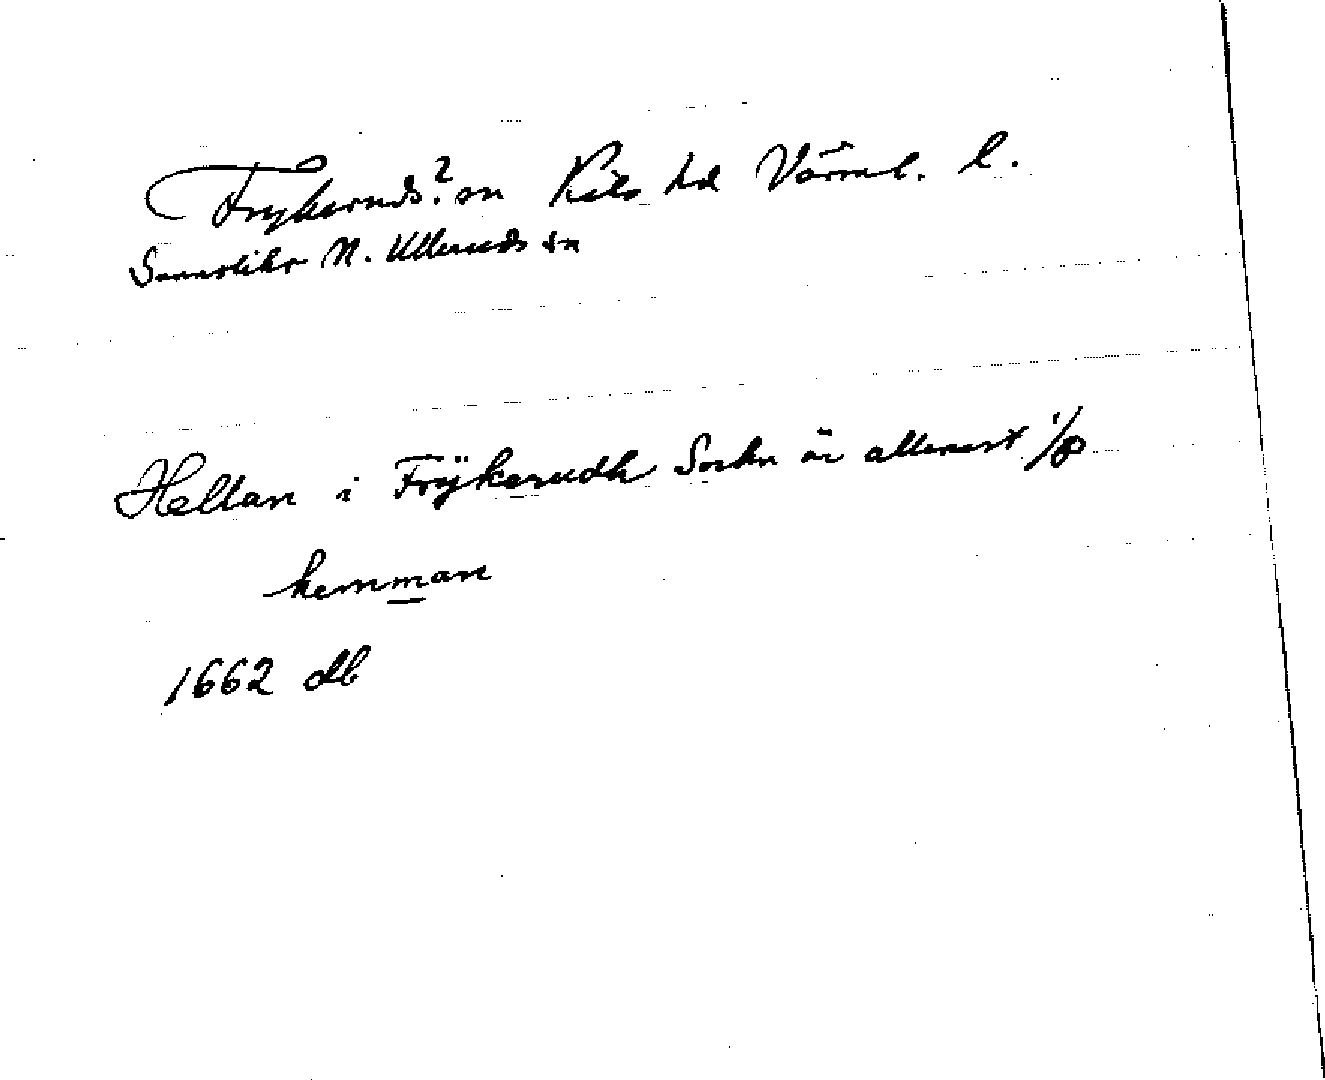 Frykeruds? sn Kils hd Värml. l.
Sannolikr N. Ulleruds sn
Helltan i Frÿkerudh Sochn är allenast 1/8
hemman
1662 db